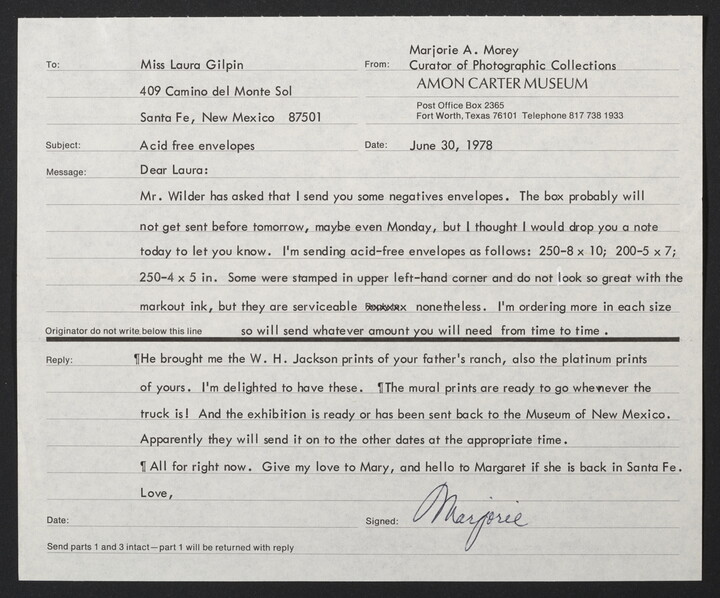 To: Miss Laura Gilpin
409 Camino del Monte Sol
Santa Fe, New Mexico 87501
From: Marjorie A. Morey
Curator of Photographic Collections
AMON CARTER MUSEUM
Post Office Box 2365
Fort Worth, Texas 76101 Telephone 817 738 1933
Subject: Acid free envelopes
Date: June 30, 1978
Message: Dear Laura:
Mr. Wilder has asked that I send you some negatives envelopes. The box probably will
not get sent before tomorrow, maybe even Monday, but I thought I would drop you a note
today to let you know. I'm sending acid-free envelopes as follows: 250-8 x 10; 200-5 x 7;
250-4 x 5 in. Some were stamped in upper left-hand corner and do not look so great with the
markout ink, but they are serviceable nonetheless. I'm ordering more in each size
Originator do not write below this line so will send whatever amount you will need from time to time .
Reply: ¶He brought me the W. H. Jackson prints of your father's ranch, also the platinum prints
of yours. I'm delighted to have these. ¶The mural prints are ready to go whenever the
truck is! And the exhibition is ready or has been sent back to the Museum of New Mexico.
Apparently they will send it on to the other dates at the appropriate time.
¶ All for right now. Give my love to Mary, and hello to Margaret if she is back in Santa Fe.
Love,
Date: Signed: Marjorie
Send parts 1 and 3 intact—part 1 will be returned with reply